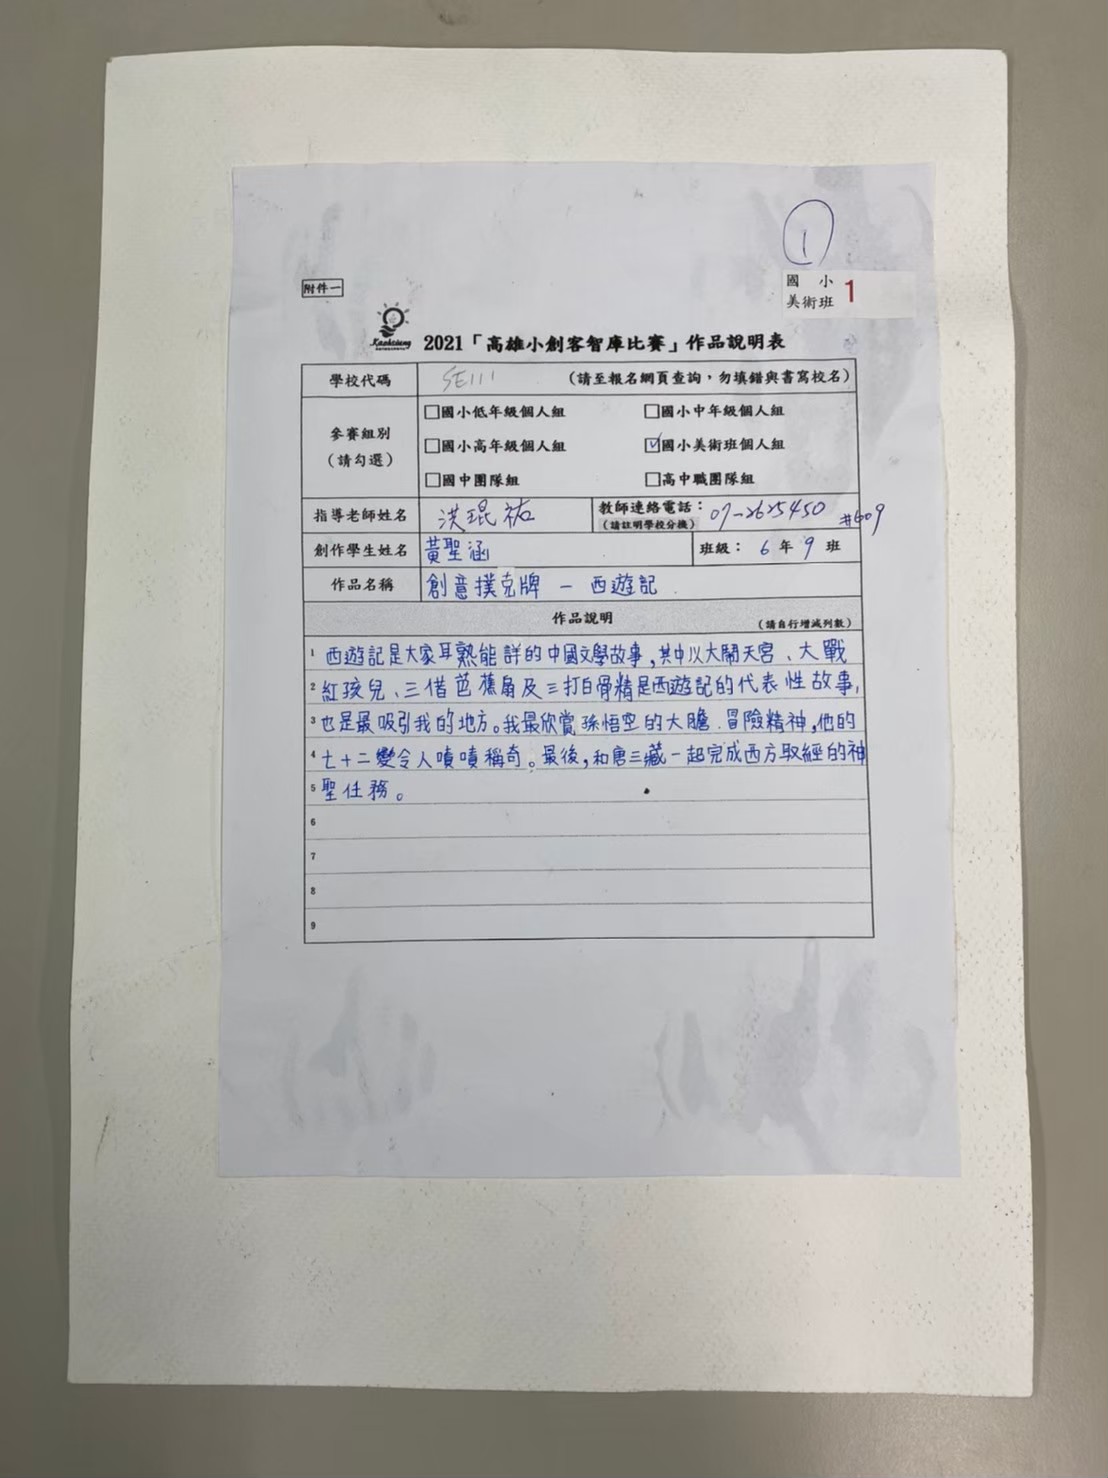 1
國小
美術班 1
附件一
Kaohsiung
2021「高雄小創客智庫比賽」作品說明表
學校代碼 SE111 (請至報名網頁查詢,勿填錯與書寫校名)
參賽組別
(請勾選)
□國小低年級個人組 □國小中年級個人組
□國小高年級個人組 ☑國小美術班個人組
□國中團隊組 □高中職團隊組
指導老師姓名 洪琨祐 教師連絡電話: 07-2625450 #609
(請註明學校分機)
創作學生姓名 黃聖涵 班級: 6 年 9 班
作品名稱 創意撲克牌 - 西遊記
作品說明 (請自行增減列數)
1 西遊記是大家耳熟能詳的中國文學故事,其中以大鬧天宮、大戰
2 紅孩兒、三借芭蕉扇及三打白骨精是西遊記的代表性故事,
3 也是最吸引我的地方。我最欣賞孫悟空的大膽、冒險精神,他的
4 七十二變令人嘖嘖稱奇。最後,和唐三藏一起完成西方取經的神
5 聖任務。
6
7
8
9